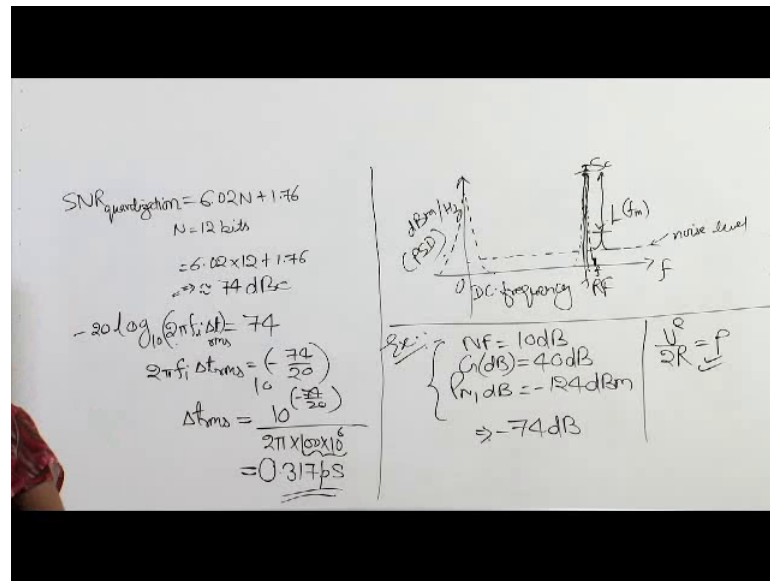 SNR quantization = 6.02N + 1.76
N = 12 bits
= 6.02 × 12 + 1.76
⇒ ≈ 74 dBc
- 20 log10 (2πfi Δt rms) = 74
2πfi Δtrms = 10^(-74/20)
Δtrms = 10^(-74/20) / 2π × 100 × 10^6
= 0.317 ps
dBm/Hz
(PSD)
Sc
L(fm)
noise level
f
0 DC frequency RF
Ex:-
NF = 10dB
G(dB) = 40dB
PN, dB = -124dBm
⇒ -74dB
V²/2R = P